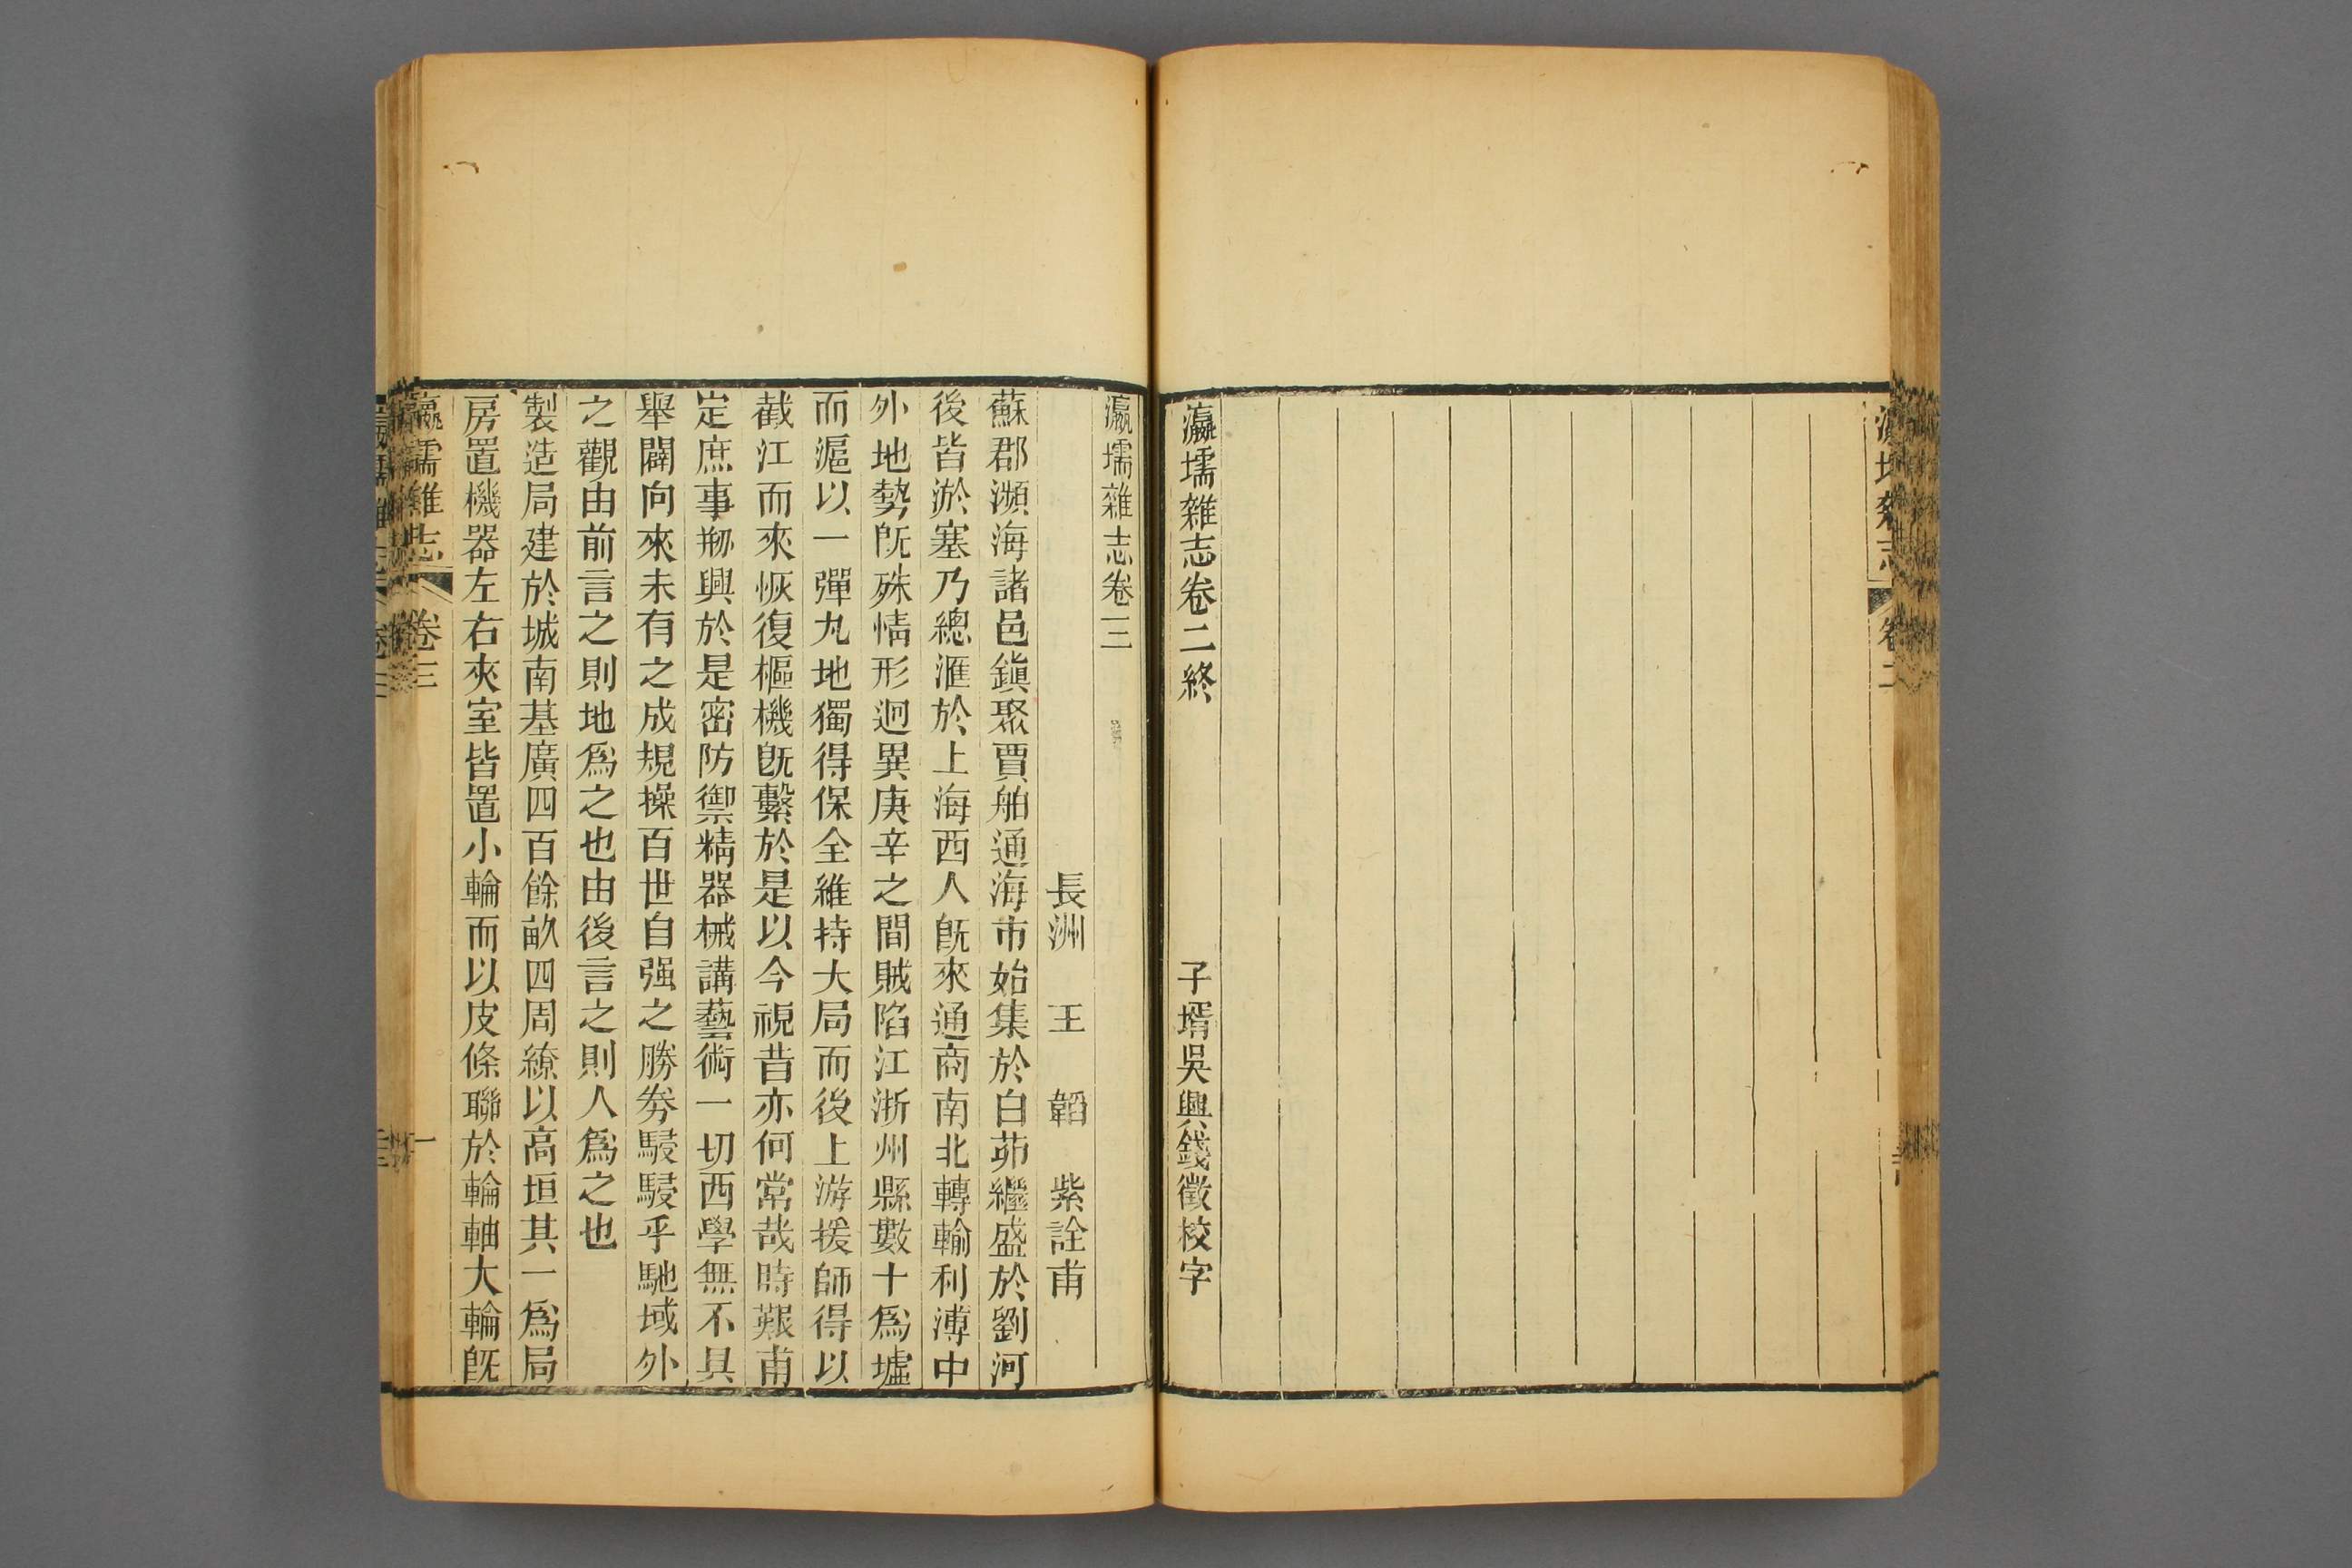 瀛壖雜志卷二終　子壻吳興錢徵校字
瀛壖雜志卷三
長洲　王　韜　紫詮甫
蘇郡瀕海諸邑鎮聚賈舶通海市始集於白茆繼盛於劉河
後皆淤塞乃總滙於上海西人旣來通商南北轉輸利溥中
外地勢旣殊情形迥異庚辛之間賊陷江浙州縣數十爲墟
而滬以一彈丸地獨得保全維持大局而後上游援師得以
截江而來恢復樞機旣繫於是以今視昔亦何常哉時艱甫
定庶事剏興於是密防禦精器械講藝術一切西學無不具
舉闢向來未有之成規操百世自强之勝劵駸駸乎馳域外
之觀由前言之則地爲之也由後言之則人爲之也
製造局建於城南基廣四百餘畝四周繚以高垣其一爲局
房置機器左右夾室皆置小輪而以皮條聯於輪軸大輪旣
瀛壖雜志　卷三　一